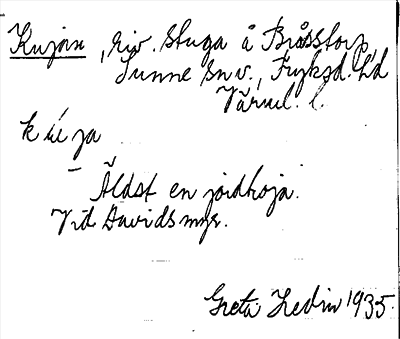 Kujan, riv. stuga å Bråsstorp,
Sunne snv., Fryksd. hd
Värml. l.
kúja
Äldst en jordkoja.
Vid Davidsmyr.
Greta Hedin 1935.